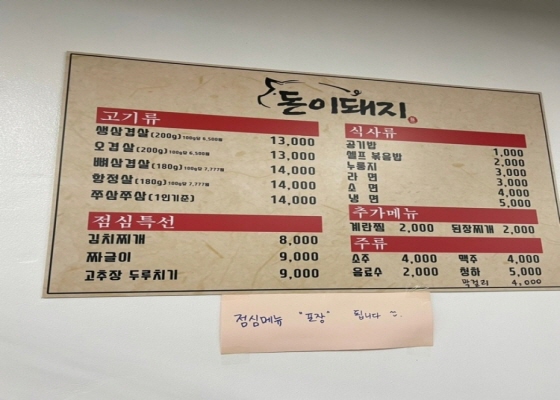 돈이돼지
고기류
생삼겹살(200g) 100g당 6,500원 13,000
오겹살(200g) 100g당 6,500원 13,000
뼈삼겹살(180g) 100g당 7,777원 14,000
항정살(180g) 100g당 7,777원 14,000
쭈삼쭈삼(1인기준) 14,000
점심특선
김치찌개 8,000
짜글이 9,000
고추장 두루치기 9,000
식사류
공기밥 1,000
셀프 볶음밥 2,000
누룽지 3,000
라 면 3,000
소 면 4,000
냉 면 5,000
추가메뉴
계란찜 2,000 된장찌개 2,000
주류
소주 4,000 맥주 4,000
음료수 2,000 청하 5,000
막걸리 4,000
점심메뉴 "포장" 됩니다